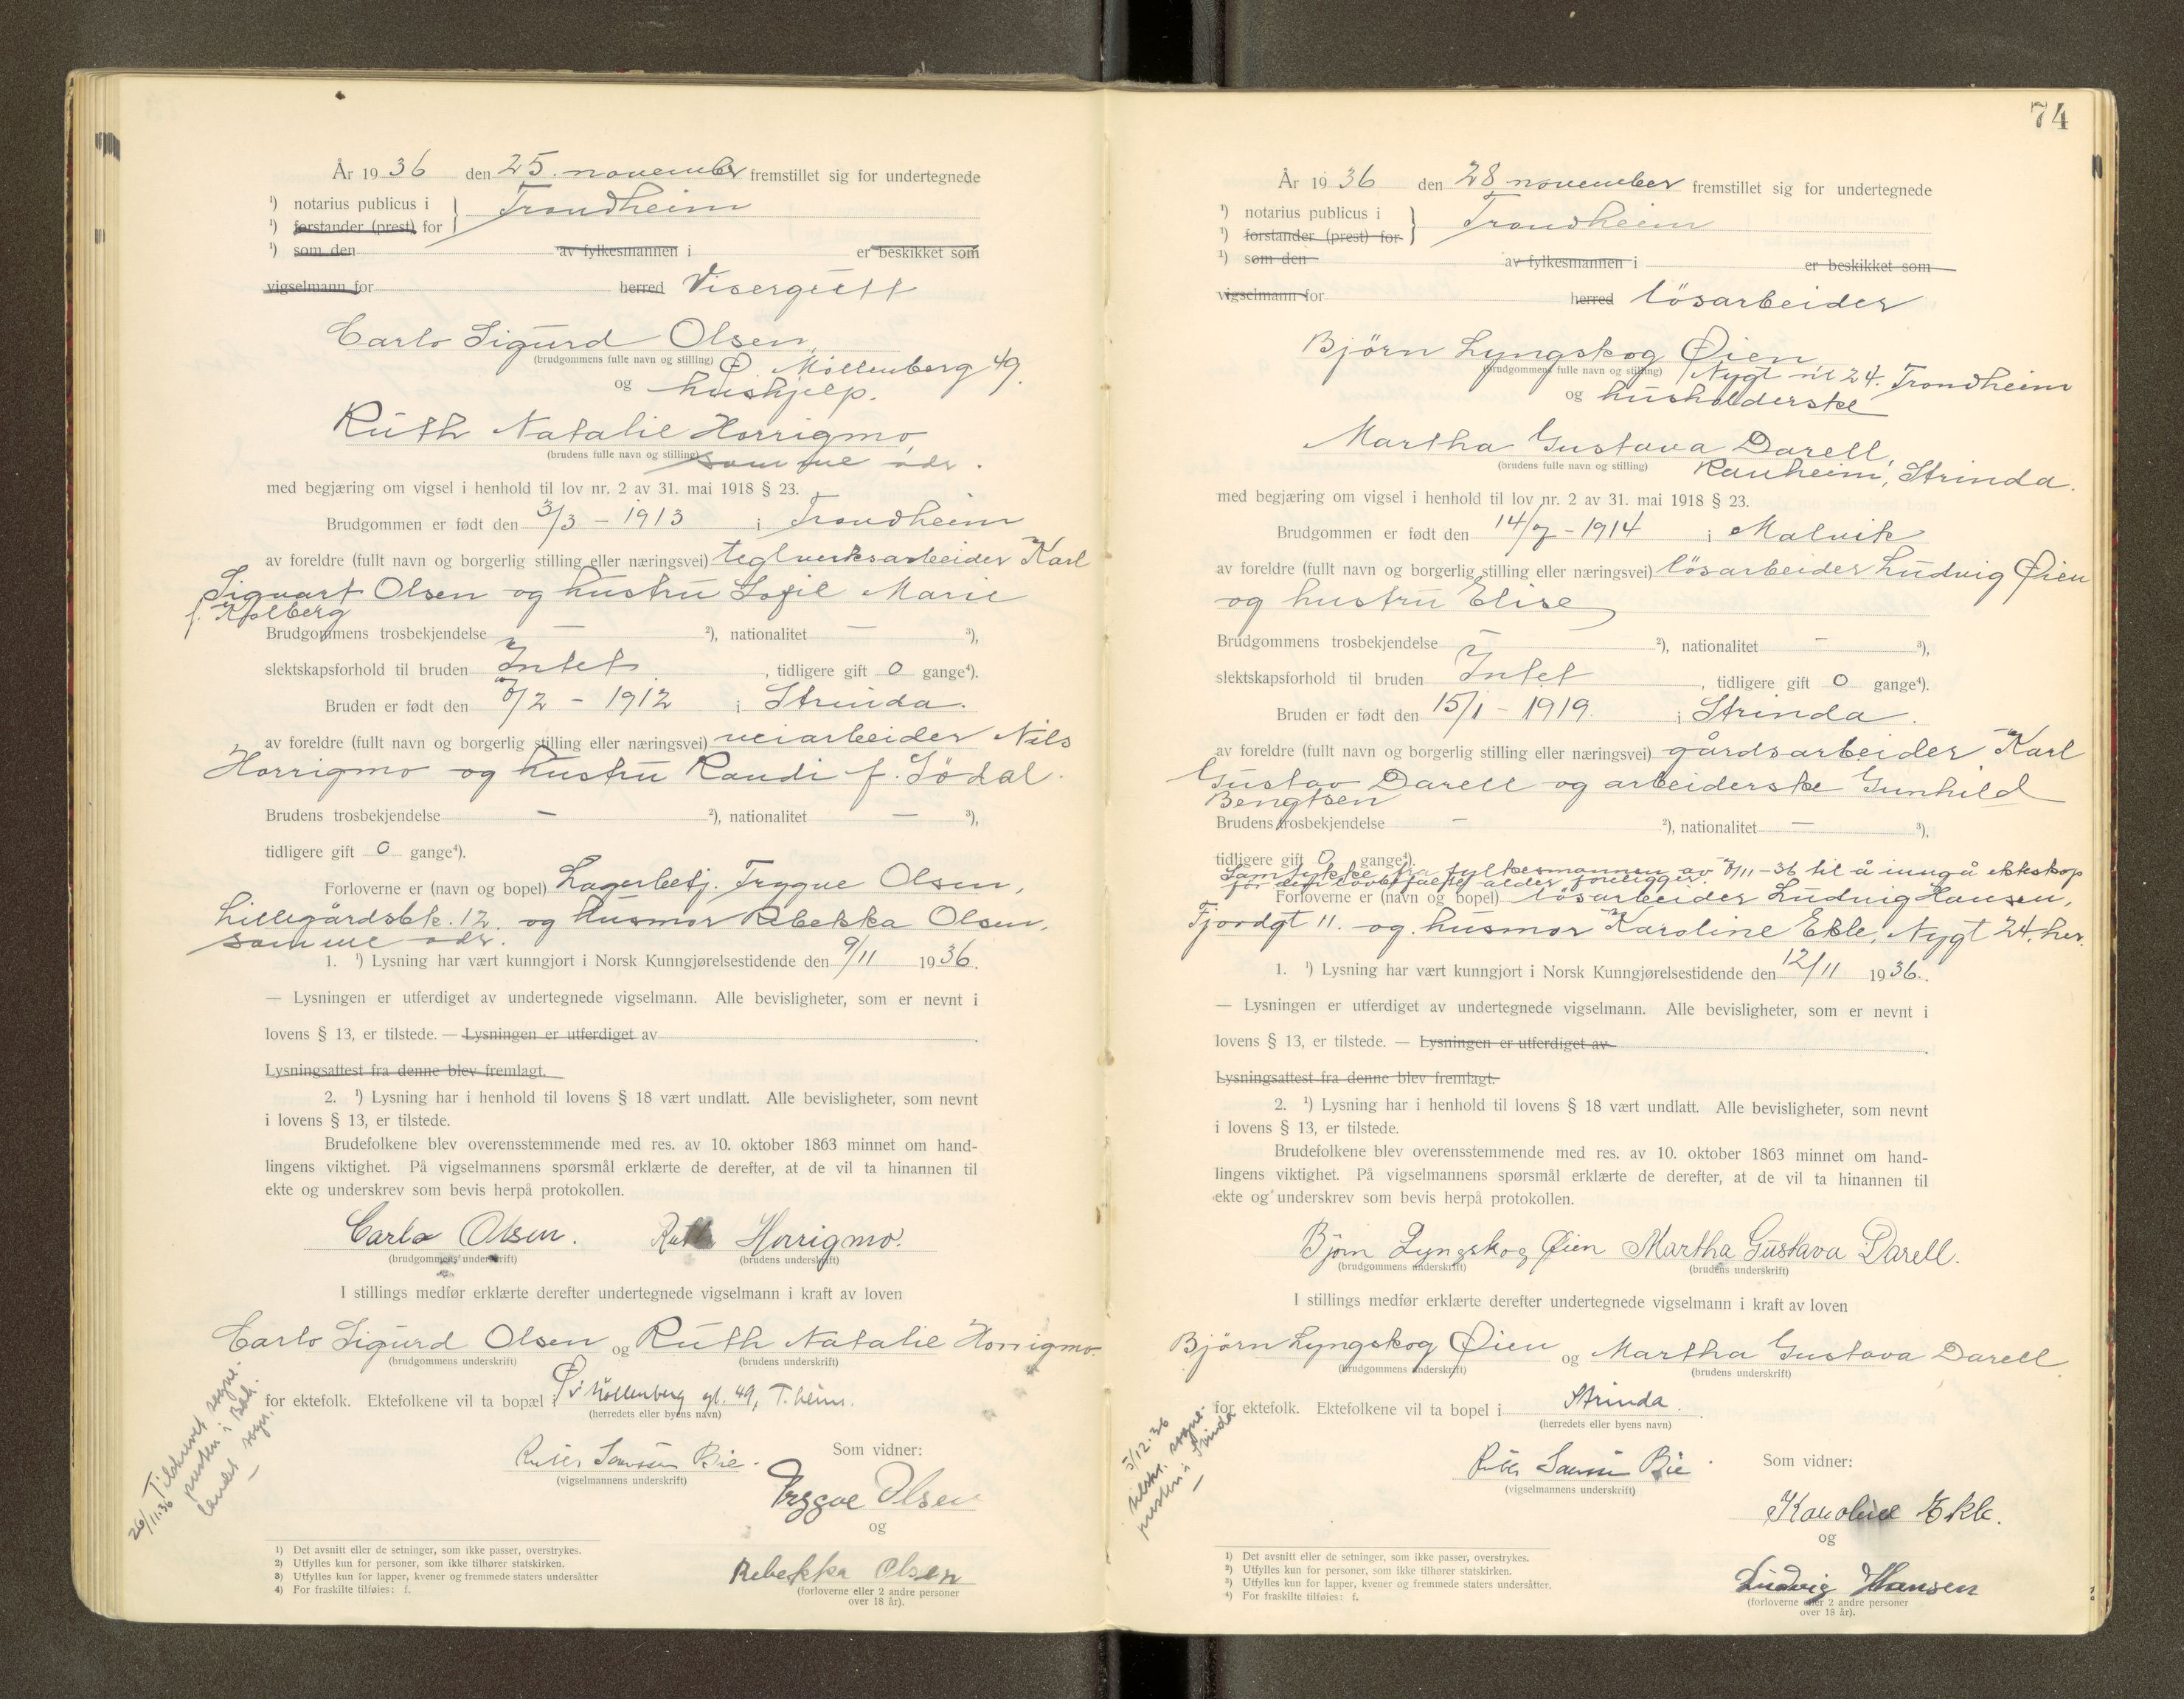 År 1936 den 25. november fremstillet sig for undertegnede
¹) notarius publicus i } Trondheim
¹) forstander (prest) for
¹) som den av fylkesmannen i er beskikket som
vigselmann for herred Visergutt
Carlo Sigurd Olsen,
(brudgommens fulle navn og stilling) Ø. Møllenberg 49.
og hushjelp.
Ruth Natalie Horrigmo,
(brudens fulle navn og stilling) samme adr.
med begjæring om vigsel i henhold til lov nr. 2 av 31. mai 1918 § 23.
Brudgommen er født den 3/3 - 1913 i Trondheim
av foreldre (fullt navn og borgerlig stilling eller næringsvei) teglverksarbeider Karl
Sigvart Olsen og hustru Sofie Marie
f. Kolberg
Brudgommens trosbekjendelse — ²), nationalitet — ³),
slektskapsforhold til bruden Intet, tidligere gift 0 gange⁴).
Bruden er født den 8/2 - 1912 i Strinda.
av foreldre (fullt navn og borgerlig stilling eller næringsvei) veiarbeider Nils
Horrigmo og hustru Randi f. Södal.
Brudens trosbekjendelse — ²), nationalitet — ³),
tidligere gift 0 gange⁴).
Forloverne er (navn og bopel) Lagerbetj. Trygve Olsen,
Lillegårdsbk. 12. og husmor Rebekka Olsen,
samme adr.
1. ¹) Lysning har vært kunngjort i Norsk Kunngjørelsestidende den 9/11 1936.
— Lysningen er utferdiget av undertegnede vigselmann. Alle bevisligheter, som er nevnt i
lovens § 13, er tilstede. — Lysningen er utferdiget av
Lysningsattest fra denne blev fremlagt.
2. ¹) Lysning har i henhold til lovens § 18 vært undlatt. Alle bevisligheter, som nevnt
i lovens § 13, er tilstede.
Brudefolkene blev overensstemmende med res. av 10. oktober 1863 minnet om hand-
lingens viktighet. På vigselmannens spørsmål erklærte de derefter, at de vil ta hinannen til
ekte og underskrev som bevis herpå protokollen.
Carlo Olsen. Ruth Horrigmo.
(brudgommens underskrift) (brudens underskrift)
I stillings medfør erklærte derefter undertegnede vigselmann i kraft av loven
Carlo Sigurd Olsen og Ruth Natalie Horrigmo
(brudgommens underskrift) (brudens underskrift)
for ektefolk. Ektefolkene vil ta bopæl i Øv. Möllenberg gt. 49, T.heim.
(herredets eller byens navn)
Som vidner:
Bie.
(vigselmannens underskrift)
Trygve Olsen
og
Rebekka Olsen
(forloverne eller 2 andre personer
over 18 år).
26/11.36 Tilskrevet sogne-
presten i Bak-
landet sogn.
1) Det avsnitt eller de setninger, som ikke passer, overstrykes.
2) Utfylles kun for personer, som ikke tilhører statskirken.
3) Utfylles kun for lapper, kvener og fremmede staters undersåtter
4) For fraskilte tilføies: f.
74
År 1936 den 28 november fremstillet sig for undertegnede
¹) notarius publicus i } Trondheim
¹) forstander (prest) for
¹) som den av fylkesmannen i er beskikket som
vigselmann for herred lösarbeider
Bjørn Lyngskog Øien,
(brudgommens fulle navn og stilling) Nygt nr 24. Trondheim
og husholderske
Martha Gustava Darell,
(brudens fulle navn og stilling) Ranheim, Strinda.
med begjæring om vigsel i henhold til lov nr. 2 av 31. mai 1918 § 23.
Brudgommen er født den 14/7 - 1914 i Malvik
av foreldre (fullt navn og borgerlig stilling eller næringsvei) lösarbeider Ludvig Øien
og hustru Elise
Brudgommens trosbekjendelse — ²), nationalitet — ³),
slektskapsforhold til bruden Intet, tidligere gift 0 gange⁴).
Bruden er født den 15/1 - 1919. i Strinda.
av foreldre (fullt navn og borgerlig stilling eller næringsvei) gårdsarbeider Karl
Gustav Darell og arbeiderske Gunhild
Bengtsen
Brudens trosbekjendelse — ²), nationalitet — ³),
tidligere gift 0 gange⁴).
Samtykke fra fylkesmannen av 7/11-36 til å inngå ekteskap
før den lovbefalte alder foreligger.
Forloverne er (navn og bopel) lösarbeider Ludvig Hansen,
Fjordgt 11. og husmor Karoline Ekle, Nygt 24. her.
1. ¹) Lysning har vært kunngjort i Norsk Kunngjørelsestidende den 12/11 1936.
— Lysningen er utferdiget av undertegnede vigselmann. Alle bevisligheter, som er nevnt i
lovens § 13, er tilstede. — Lysningen er utferdiget av
Lysningsattest fra denne blev fremlagt.
2. ¹) Lysning har i henhold til lovens § 18 vært undlatt. Alle bevisligheter, som nevnt
i lovens § 13, er tilstede.
Brudefolkene blev overensstemmende med res. av 10. oktober 1863 minnet om hand-
lingens viktighet. På vigselmannens spørsmål erklærte de derefter, at de vil ta hinannen til
ekte og underskrev som bevis herpå protokollen.
Bjørn Lyngskog Øien Martha Gustava Darell.
(brudgommens underskrift) (brudens underskrift)
I stillings medfør erklærte derefter undertegnede vigselmann i kraft av loven
Bjørn Lyngskog Øien og Martha Gustava Darell
(brudgommens underskrift) (brudens underskrift)
for ektefolk. Ektefolkene vil ta bopel i Strinda.
(herredets eller byens navn)
Som vidner:
Bie
(vigselmannens underskrift)
Karoline Ekle.
og
Ludvig Hansen
(forloverne eller 2 andre personer
over 18 år).
5/12.36
tilskr. sogne-
presten i Strinda
1) Det avsnitt eller de setninger, som ikke passer, overstrykes.
2) Utfylles kun for personer, som ikke tilhører statskirken.
3) Utfylles kun for lapper, kvener og fremmede staters undersåtter.
4) For fraskilte tilføies: f.